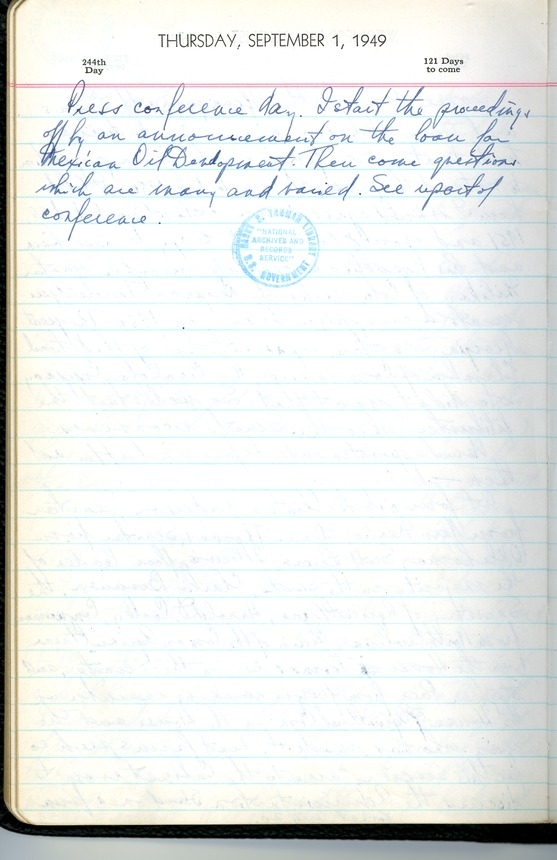 THURSDAY, SEPTEMBER 1, 1949
244th
Day
121 Days
to come
Press conference day. I start the proceedings
off by an announcement on the loan for
Mexican Oil Development. Then come questions
which are many and varied. See report of
conference.
HARRY S. TRUMAN LIBRARY
"NATIONAL
ARCHIVES AND
RECORDS
SERVICE"
U.S. GOVERNMENT